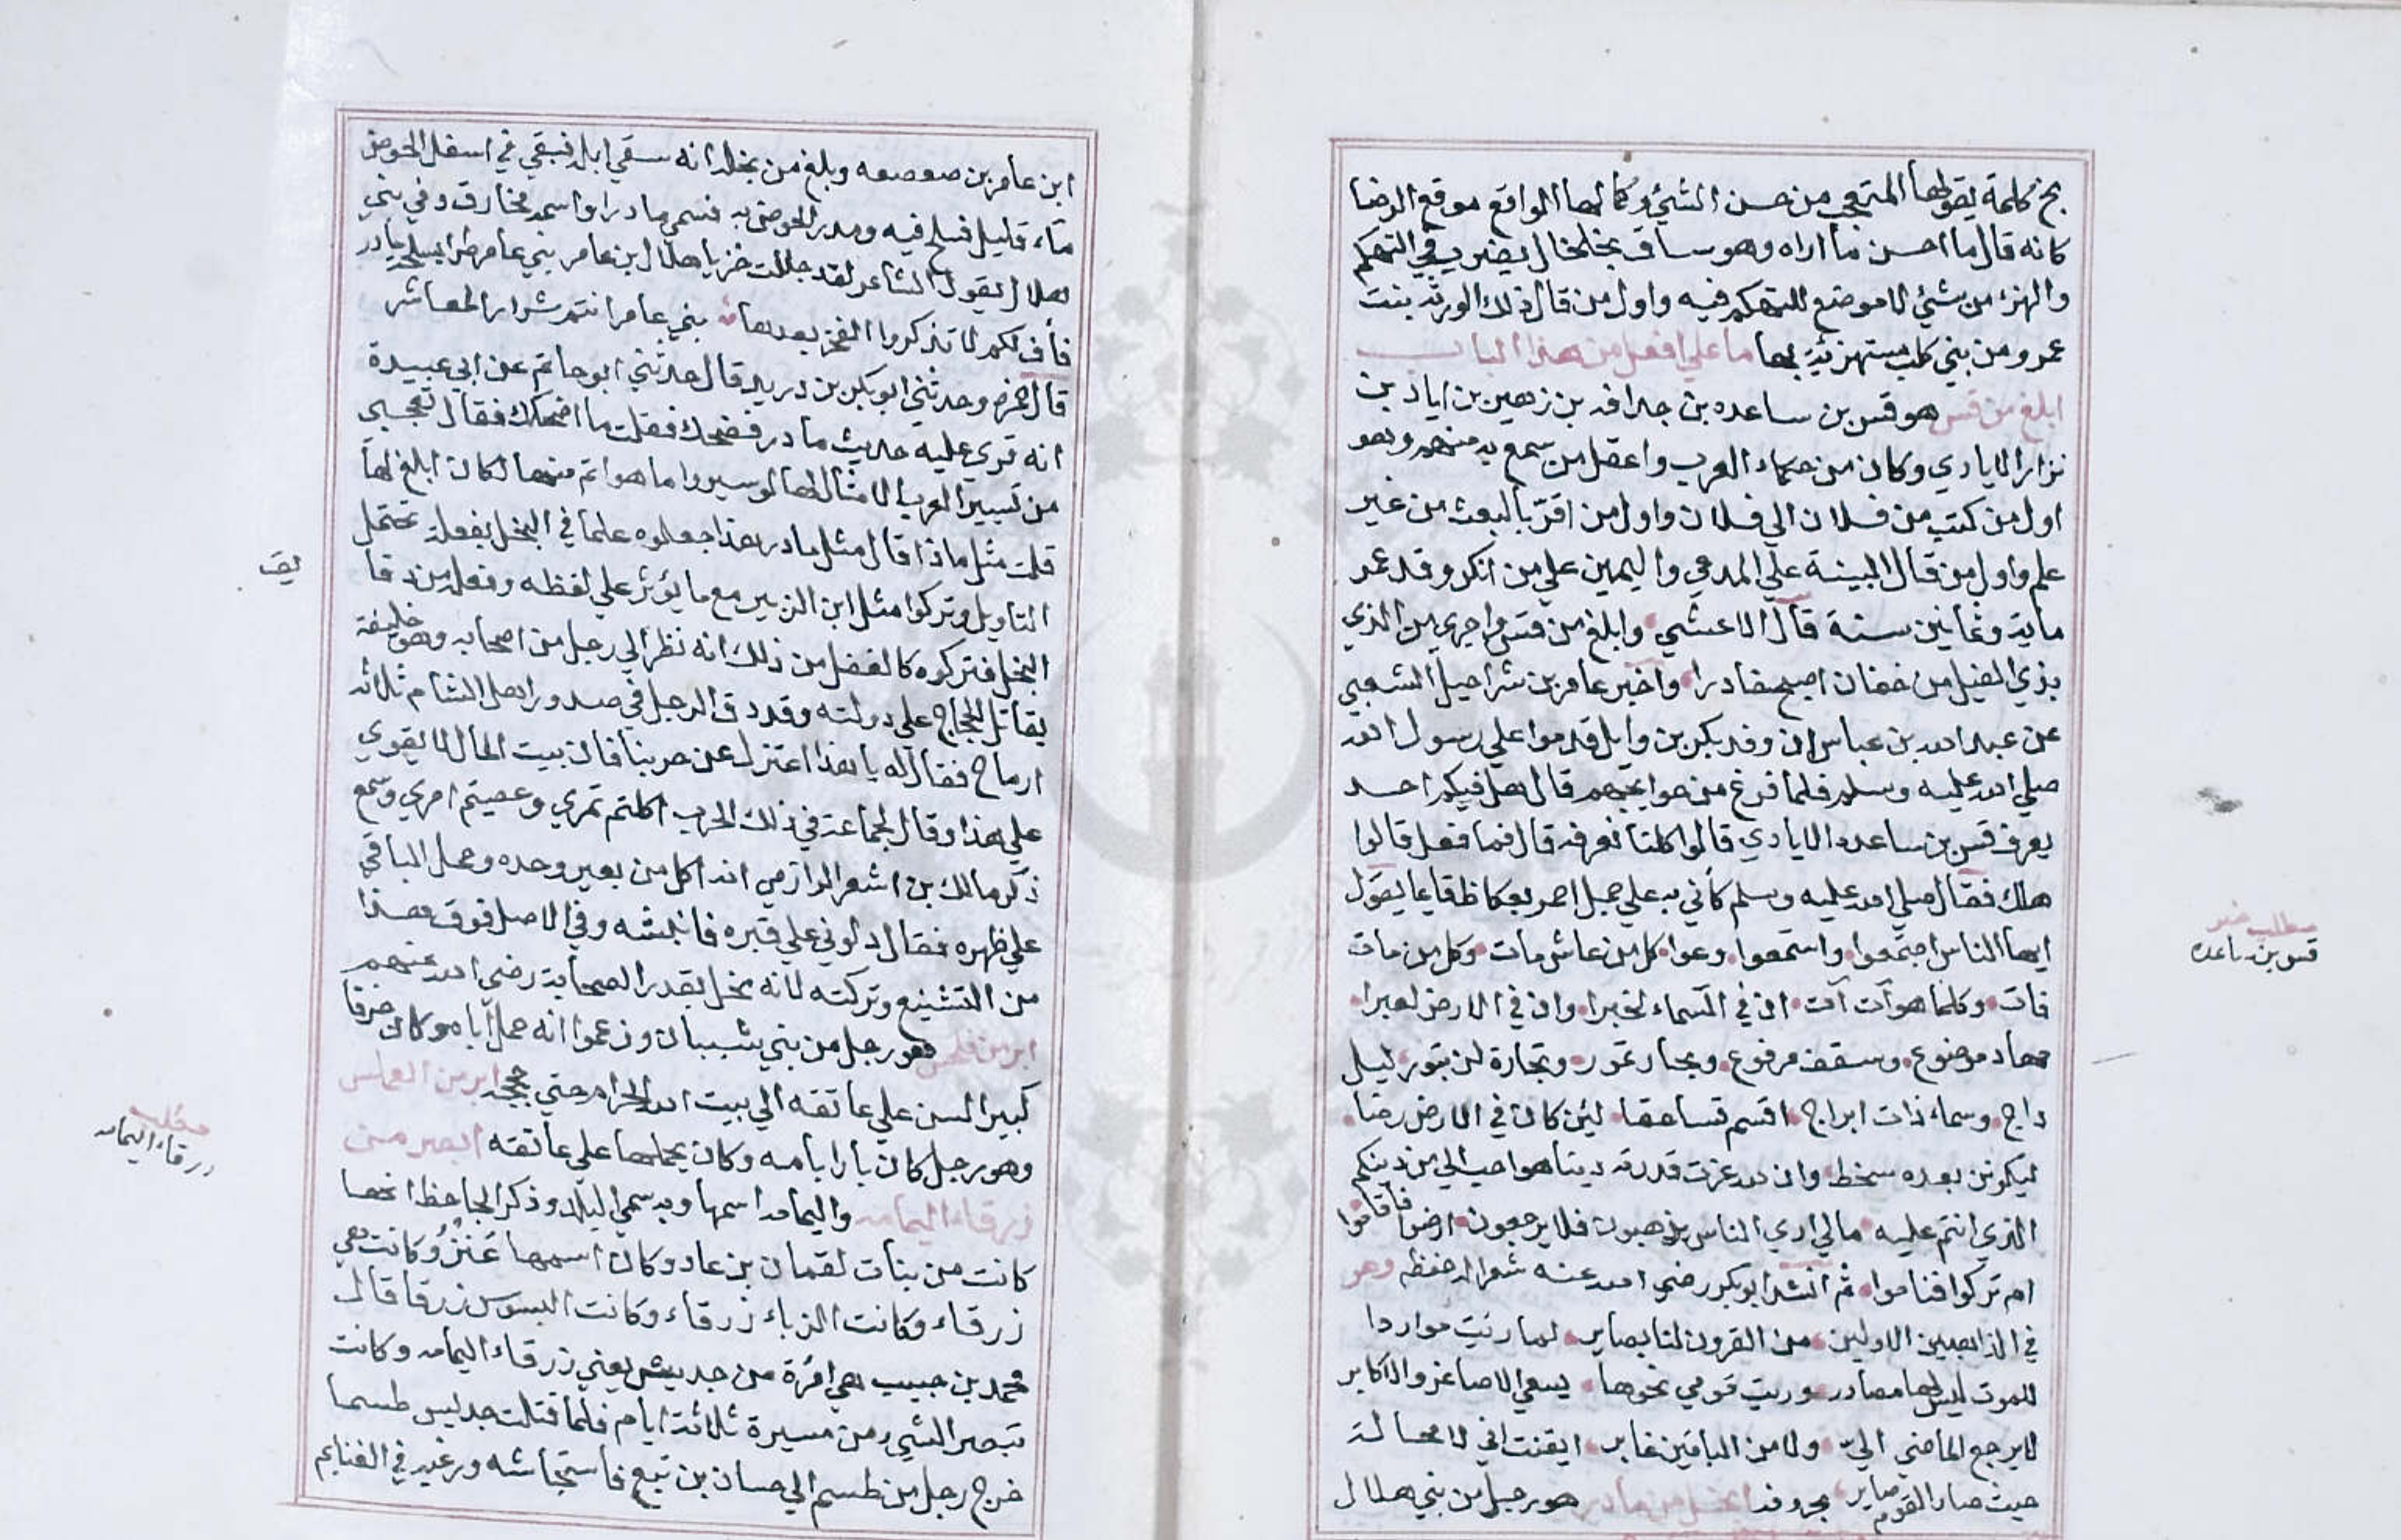 بخ كلمة يقولها المتعجب من حسن الشيء وكمالها الواقع موقع الرضا
كانه قال ما احسن ما اراه وهو ساق بخلخال يضرب في التهكم
والهزء من شيء لا موضع للتهكم فيه واول من قال ذلك الورثه بنت
عمرو من بني كلب مستهزئة بها ما على افعل من هذا الباب
ابلغ من قس هو قس بن ساعده بن جدافه بن زهير بن اياد بن
نزار الايادي وكان من حكماء العرب واعقل من سمع به منهم وهو
اول من كتب من فلان الي فلان واول من اقرّ بالبعث من غير
علم واول من قال البينة علي المدعي واليمين علي من انكر وقد عمر
ماية وثمانين سنة قال الاعشي وابلغ من قس واجري من الذي
بذي الغيل من خفان اصبح خادرا واخبر عامر بن شراحيل الشعبي
عن عبد الله بن عباس ان وفد بكر بن وايل قدموا علي رسول الله
صلي الله عليه وسلم فلما فرغ من حوايجهم قال هل فيكم احد
يعرف قس بن ساعده الايادي قالوا كلنا نعرفه قال فما فعل قالوا
هلك فقال صلي الله عليه وسلم كأني به علي جمل احمر بعكاظ قايما يقول
ايها الناس اجتمعوا واستمعوا وعوا كل من عاش مات وكل من مات
فات وكلما هو آت آت ان في السماء لخبرا وان في الارض لعبرا
مهاد موضوع وسقف مرفوع وبحار تمور وتجارة لن تبور ليل
داج وسماء ذات ابراج اقسم قسا حقا لين كان في الارض رضا
ليكونن بعده سخط وان لله عزت قدرته دينا هو احب الي من دينكم
الذي انتم عليه مالي اري الناس يذهبون فلا يرجعون ارضوا فاقاموا
ام تركوا فناموا ثم انشد ابو بكر رضي الله عنه شعرا له حفظه وهو
في الذاهبين الاولين من القرون لنا بصاير لما رئيت مواردا
للموت ليس لها مصادر وريت قومي نحوها يسعي الاصاغر والاكابر
لا يرجع الماضي اليّ ولا من الباقين غابر ايقنت اني لا محالة
حيث صار القوم صاير بحروفه ابخل من مادر هو رجل من بني هلال
مطلب خبر
قس بن ساعده
ابن عامر بن صعصعه وبلغ من بخله انه سقي ابله فبقي في اسفل الحوض
ماء قليل فسلح فيه ومدر الحوض به فسمي مادرا واسمه مخارق وفي بني
هلال يقول الشاعر لقد جللت خزيا هلال بن عامر بني عامر طرا بسلحة مادر
فأف لكم لا تذكروا الفخر بعدها بني عامر انتم شرار المعاشر
قال حمزه وحدثني ابو بكر بن دريد قال حدثني ابو حاتم عن ابي عبيدة
انه قري عليه حديث مادر فضحك فقلت ما اضحكك فقال تعجبي
من تسيير العرب الامثال لها لو سيروا ما هو اتم منها لكان ابلغ لها
قلت مثل ماذا قال مثل مادر هذا جعلوه علما في البخل بفعلة تحتمل
التاويل وتركوا مثل ابن الزبير مع ما يؤثر علي لفظه وفعله من دقا
يق
البخل فتركوه كالغفل من ذلك انه نظر الي رجل من اصحابه وهو خليفة
يقاتل الحجاج علي دولته وقد دق الرجل في صدور اهل الشام ثلاثه
ارماح فقال له يا هذا اعتزل عن حربنا فان بيت المال لا يقوي
علي هذا وقال لجماعة في ذلك الحرب اكلتم تمري وعصيتم امري وسمع
ذكر مالك بن اشعر الرازمي انه اكل من بعير وحده وحمل الباقي
علي ظهره فقال دلوني علي قبره فانبشه وفي الاصل فوق هذا
من التشنيع وتركته لانه مخل بقدر الصحابة رضي الله عنهم
ابر من فلحس هو رجل من بني شيبان وزعموا انه حمل آباه وكان خرفا
كبير السن علي عاتقه الي بيت الله الحرام حتي حججه ابر من العملس
وهو رجل كان بارا بامه وكان يحملها علي عاتقه ابصر من
زرقاء اليمامه واليمامه اسمها وبه سمي البلد وذكر الجاحظ انها
كانت من بنات لقمان بن عاد وكان اسمها عَنْزُ وكانت هي
زرقاء وكانت الزباء زرقاء وكانت البسوس زرقا قال
محمد بن حبيب هي امرة من جديس يعني زرقاء اليمامه وكانت
تبصر الشيء من مسيرة ثلاثة ايام فلما قتلت جديس طسما
خرج رجل من طسم الي حسان بن تبع فاستجاشه ورغبه في الغنايم
مطلب
زرقاء اليمامه